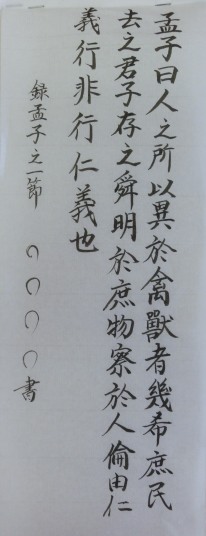 孟子曰人之所以異於禽獸者幾希庶民
去之君子存之舜明於庶物察於人倫由仁
義行非行仁義也
錄孟子之一節 〇〇〇〇書